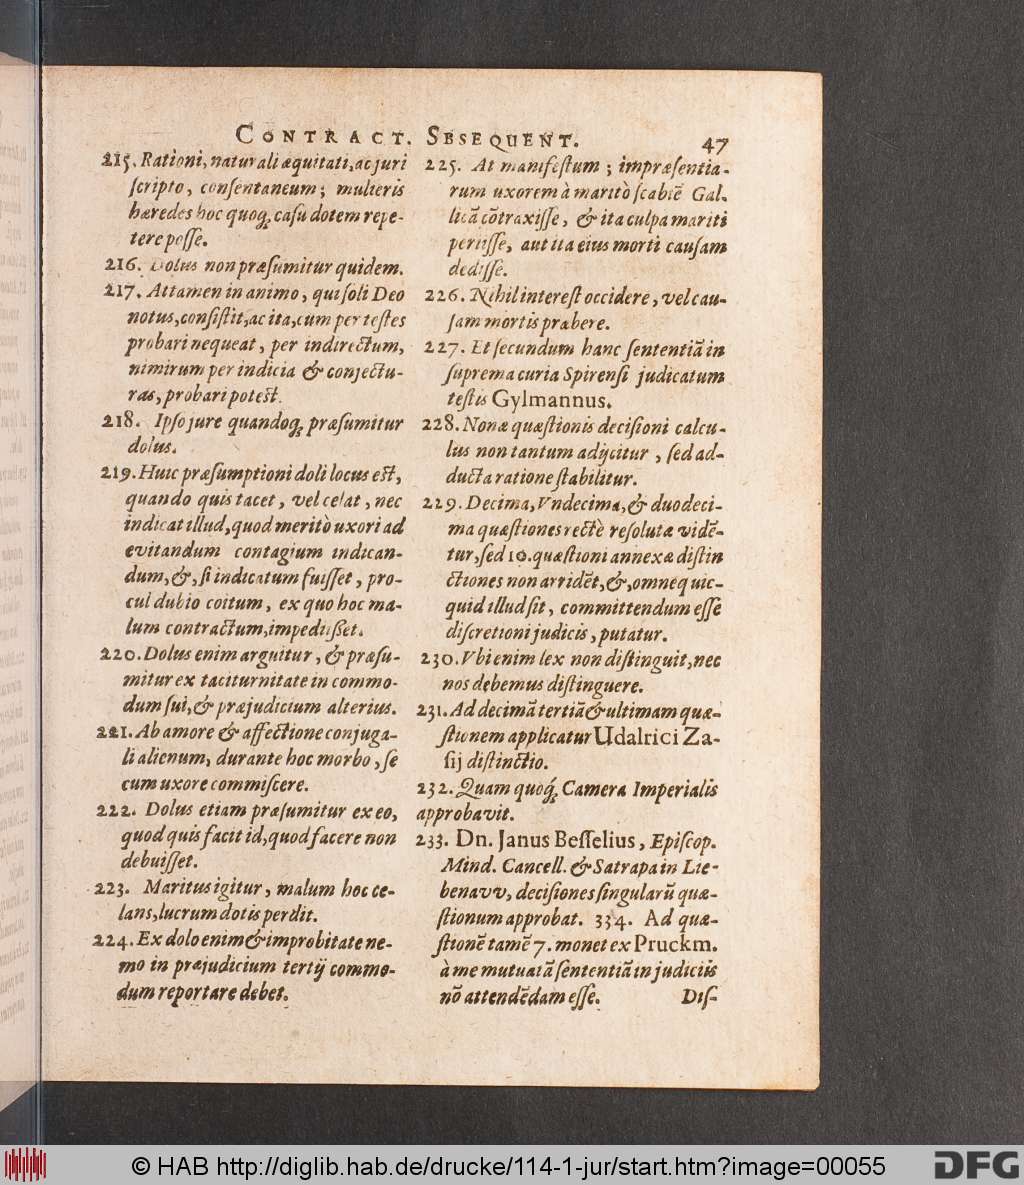 CONTRACT. SBSEQUENT. 47
215. Rationi, naturali æquitati, ac juri
ſcripto, conſentaneum; mulieris
hæredes hoc quoq; caſu dotem repe-
tere poſſe.
216. Dolus non præſumitur quidem.
217. Attamen in animo, qui ſoli Deo
notus, conſiſtit, ac ita, cum per teſtes
probari nequeat, per indirectum,
nimirum per indicia & conjectu-
ras, probari poteſt.
218. Ipſo jure quandoq; præſumitur
dolus.
219. Huic præſumptioni doli locus eſt,
quando quis tacet, vel celat, nec
indicat illud, quod meritò uxori ad
evitandum contagium indican-
dum, &, ſi indicatum fuiſſet, pro-
cul dubio coitum, ex quo hoc ma-
lum contractum, impediißet.
220. Dolus enim arguitur, & præſu-
mitur ex taciturnitate in commo-
dum ſui, & præjudicium alterius.
221. Ab amore & affectione conjuga-
li alienum, durante hoc morbo, ſe
cum uxore commiſcere.
222. Dolus etiam præſumitur ex eo,
quod quis facit id, quod facere non
debuiſſet.
223. Maritus igitur, malum hoc ce-
lans, lucrum dotis perdit.
224. Ex dolo enim & improbitate ne-
mo in præjudicium tertij commo-
dum reportare debet.
225. At manifeſtum; impræſentia-
rum uxorem à maritò ſcabiē Gal-
licā cōtraxiſſe, & ita culpa mariti
periiſſe, aut ita eius morti cauſam
dediſſe.
226. Nihil intereſt occidere, vel cau-
ſam mortis præbere.
227. Et ſecundum hanc ſententiā in
ſuprema curia Spirenſi judicatum
teſtis Gylmannus.
228. Nonæ quæſtionis deciſioni calcu-
lus non tantum adijcitur, ſed ad-
ducta ratione ſtabilitur.
229. Decima, Vndecima, & duodeci-
ma quæſtiones rectè reſolutæ vidē-
tur, ſed 10. quæſtioni annexæ diſtin
ctiones non arridēt, &, omne quic-
quid illud ſit, committendum eſſe
diſcretioni judicis, putatur.
230. Vbi enim lex non diſtinguit, nec
nos debemus diſtinguere.
231. Ad decimā tertiā & ultimam quæ-
ſtionem applicatur Udalrici Za-
ſij diſtinctio.
232. Quam quoq; Camera Imperialis
approbavit.
233. Dn. Janus Beſſelius, Epiſcop.
Mind. Cancell. & Satrapa in Lie-
benavv, deciſiones ſingularū quæ-
ſtionum approbat. 334. Ad quæ-
ſtionē tamē 7. monet ex Pruckm.
à me mutuatā ſententiā in judiciis
nō attendēdam eſſe. Diſ-
© HAB http://diglib.hab.de/drucke/114-1-jur/start.htm?image=00055
DFG